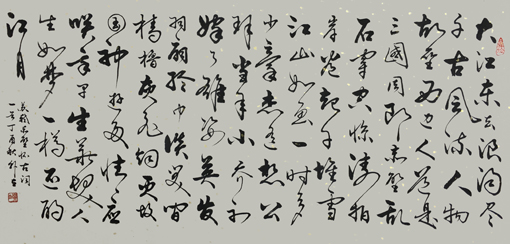 大江東去浪淘尽
千古風流人物
故壘西边人道是
三國周郎赤壁乱
石穿空惊涛拍
岸卷起千堆雪
江山如画一时多
少豪杰遥想公
瑾当年小乔初
嫁了雄姿英发
羽扇纶巾谈笑间
樯橹灰飞烟灭故
国神游多情应
笑我早生華髮人
生如梦一樽还酹
江月
苏轼赤壁怀古词
一首丁酉秋